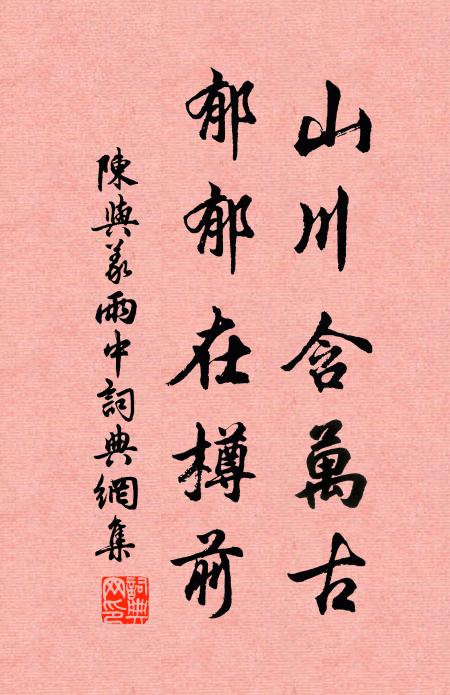 山川含萬古
郁郁在樽前
陳與義雨中詞典網集
詞典網印